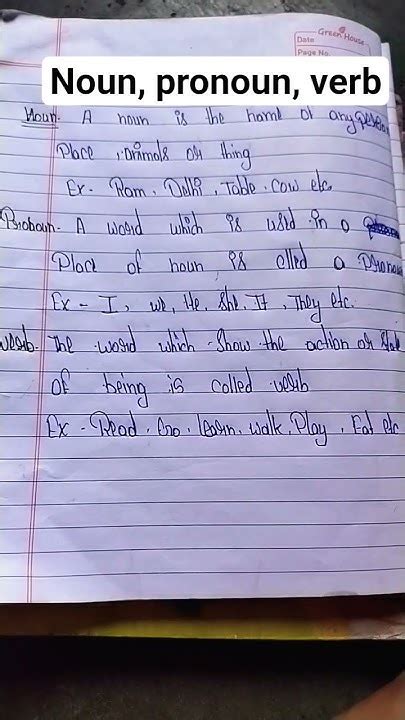 Green House
Date
Page No.
Noun, pronoun, verb
Noun- A noun is the name of any person
Place, animals or thing
Ex- Ram, Delhi, Table, cow etc
Pronoun- A word which is used in a
Place of noun is called a Pronoun
Ex - I, we, He, She, It, They etc.
verb- The word which show the action or state
of being is called verb
Ex - Read, Go, learn, walk, Play, Eat etc